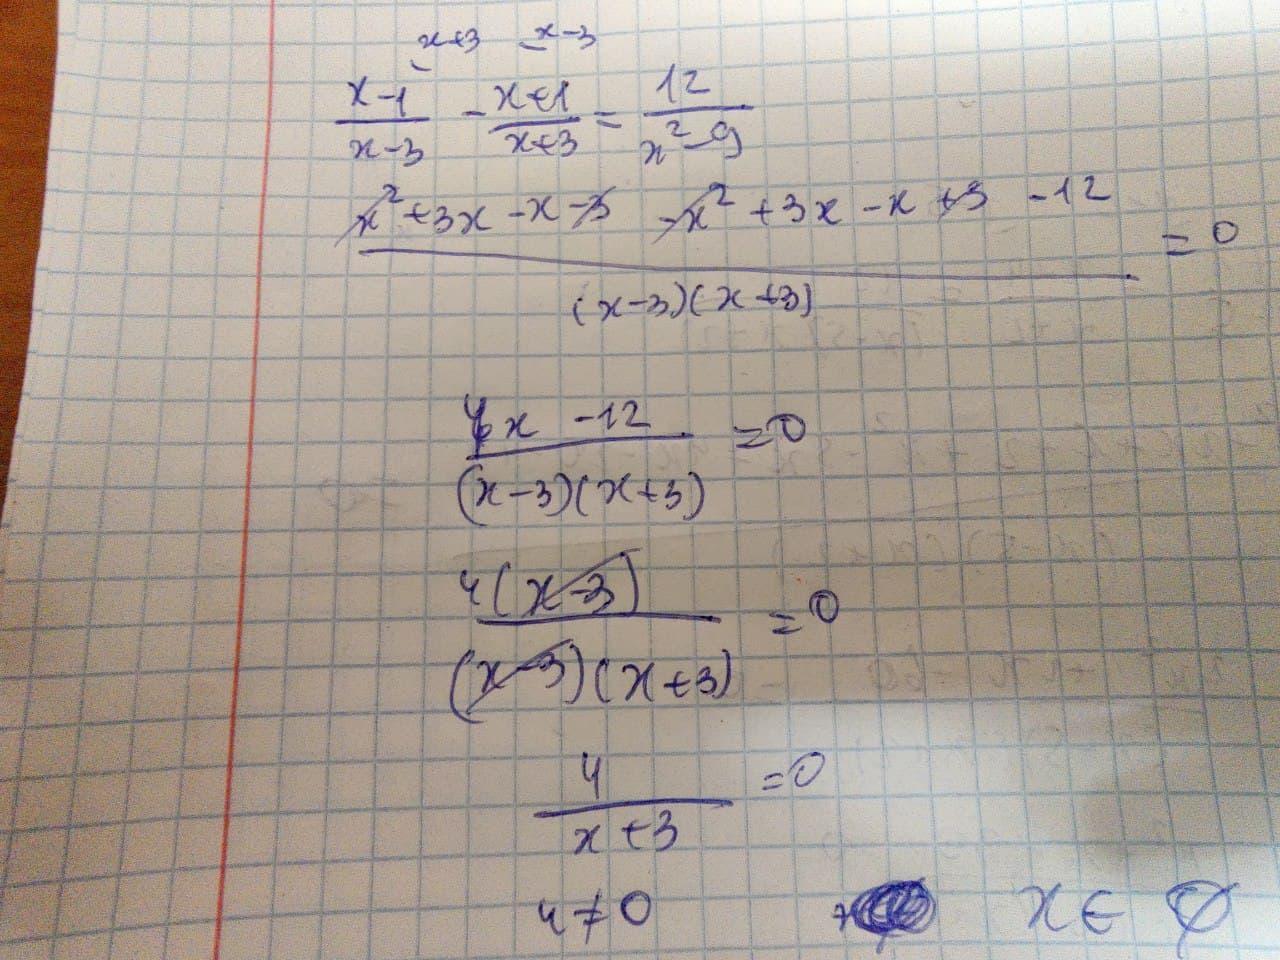 x+3 x-3
x-1/x-3 - x+1/x+3 = 12/x²-9
x²+3x-x-3 -x²+3x-x+3 -12 = 0
(x-3)(x+3)
4x -12 = 0
(x-3)(x+3)
4(x-3) = 0
(x-3)(x+3)
4 = 0
x+3
4≠0 x∈∅